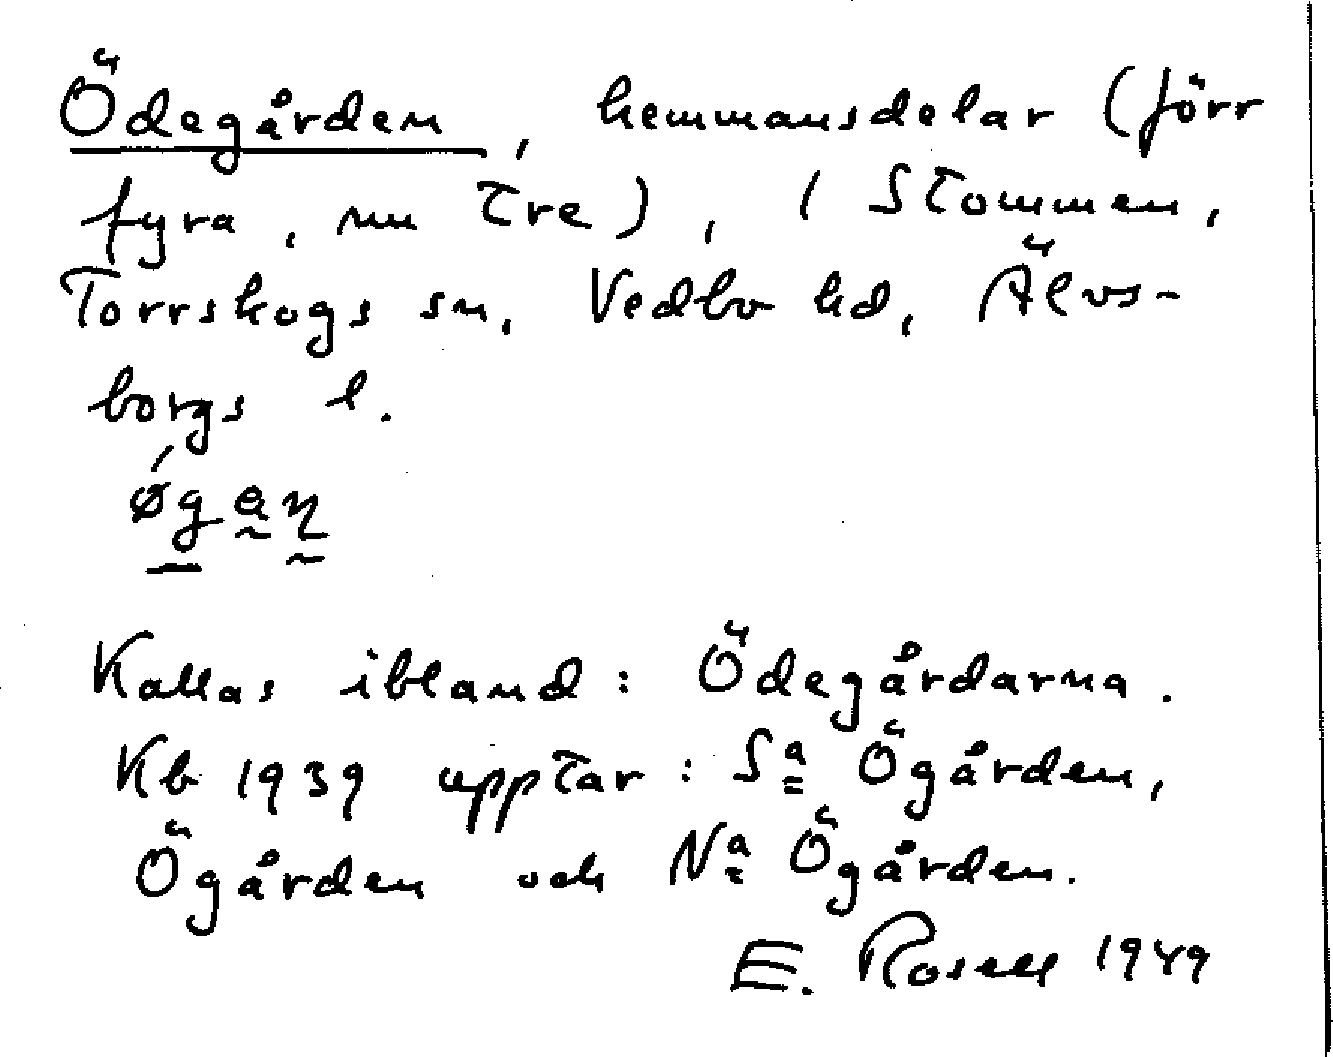 Ödegården, hemmansdelar (förr
fyra, nu tre), i Stommen,
Torrskogs sn, Vedbo hd, Älvs-
borgs l.
Kallas ibland: Ödegårdarna.
Kb 1939 upptar: Sa Ögården,
Ögården och Na Ögården.
E. Rosell 1949